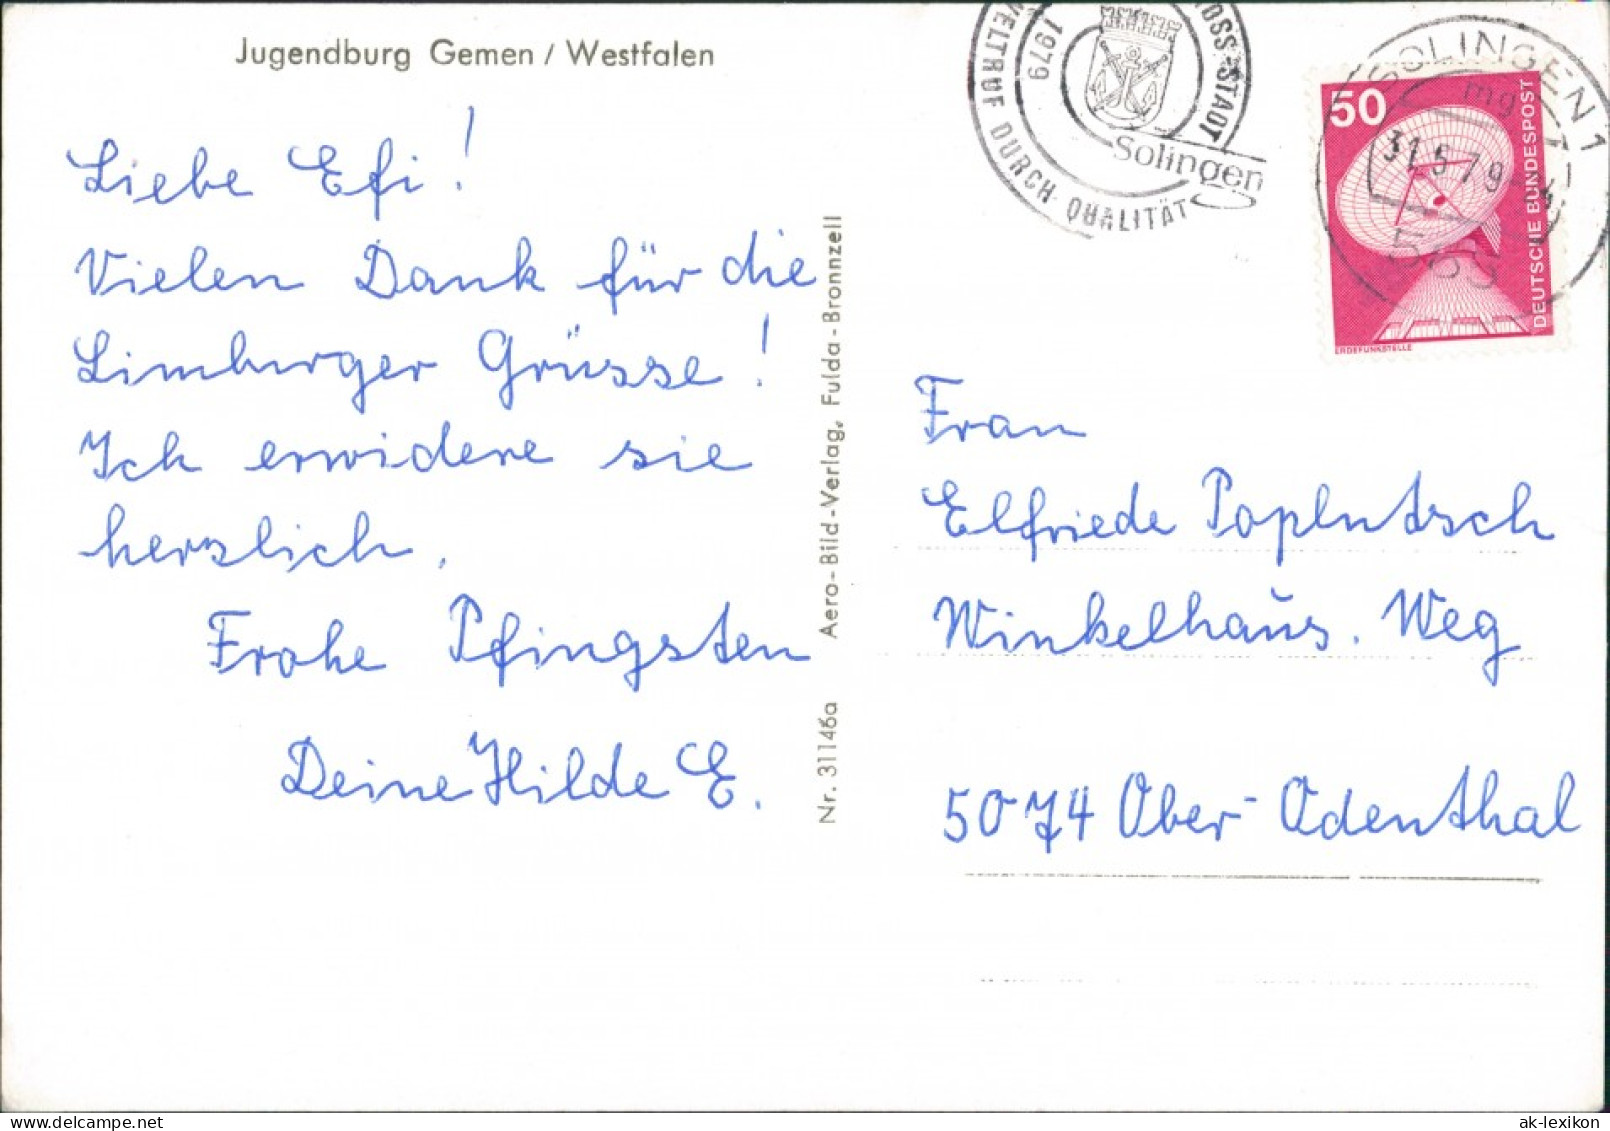 Jugendburg Gemen / Westfalen
Liebe Efi!
Vielen Dank für die
Limburger Grüsse!
Ich erwidere sie
herzlich.
Frohe Pfingsten
Deine Hilde E.
Nr. 31146a Aero-Bild-Verlag, Fulda-Bronnzell
1979
WELTRUF DURCH QUALITÄT
Solingen
SOLINGEN 1
mg
31.5.79
50
DEUTSCHE BUNDESPOST
ERDEFUNKSTELLE
Frau
Elfriede Poplutsch
Winkelhaus. Weg
5074 Ober-Odenthal
ak-lexikon